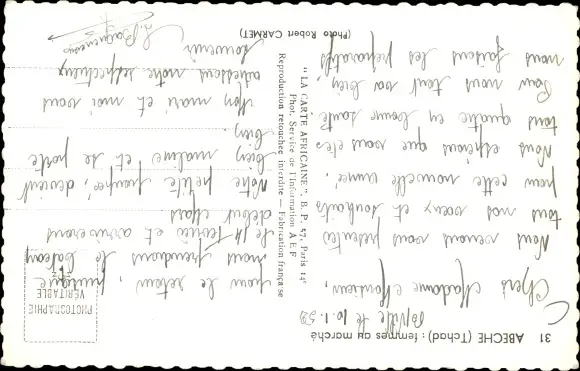 31 ABECHE (Tchad) : femmes au marché
le 10.1.59
Chers Madame et Monsieur,
Nous venons vous présenter
tous nos voeux et souhaits
pour cette nouvelle année.
Nous espérons que vous êtes
tous quatre en bonne santé
Pour nous tout va bien,
nous faisons les préparatifs
"LA CARTE AFRICAINE", B. P. 57, Paris 14e
Phot. Service de l'Information A E F
Reproduction retouchée interdite — Fabrication française
(Photo Robert CARMET)
PHOTOGRAPHIE
VERITABLE
pour le retour,
nous prendrons le bateau
le 14 février et arriverons
début Mars
Notre petite devient
bien maline et se porte
bien
Mon mari et moi vous
adressons notre respectueux
souvenir